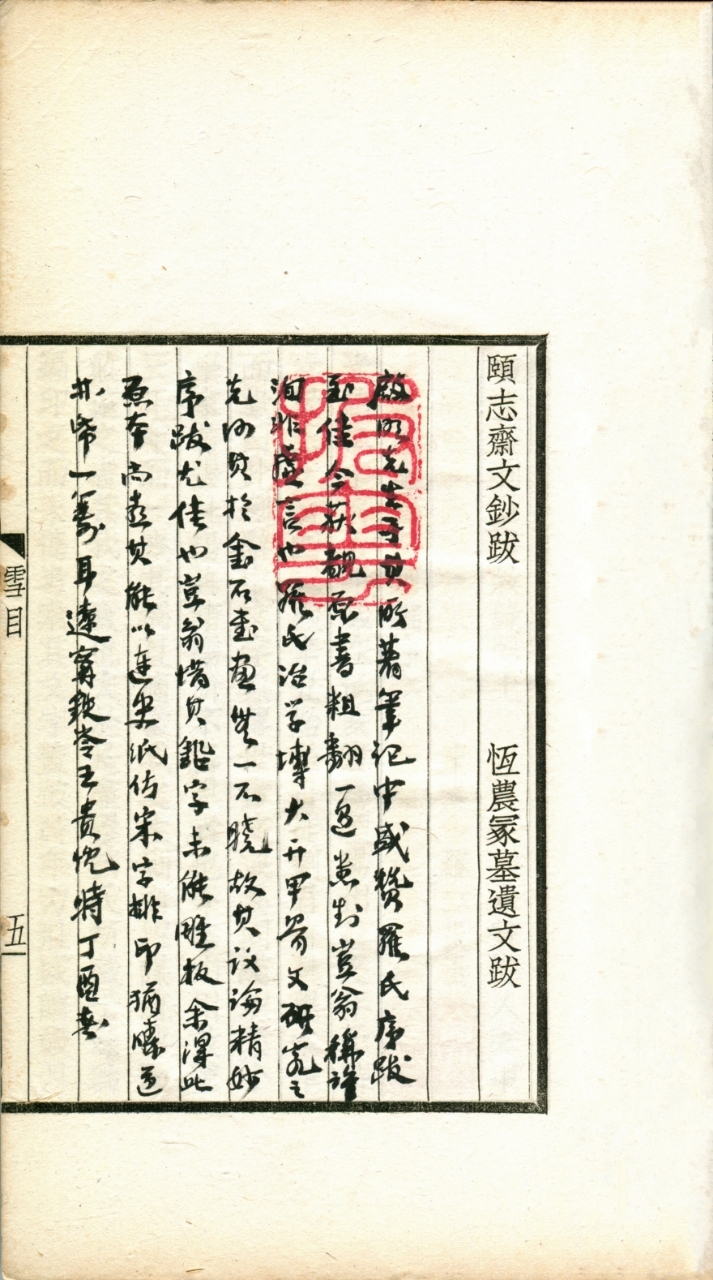 頤志齋文鈔跋　恆農冢墓遺文跋
啟明先生于其所著筆記中盛贊羅氏序跋
至佳今获觀原書粗翻一過悉封豈翁稱譽
洵非虛言也羅氏治學博大於甲骨文研究之
先河其於金石書畫無一不曉故其议論精妙
序跋尤佳也豈翁惜其鉛字未能雕板余得此
原本尚憙其能以連史紙仿宋字排印猶勝過
一籌耳遼寧鉄岺王貴忱時丁酉春
雪目
五